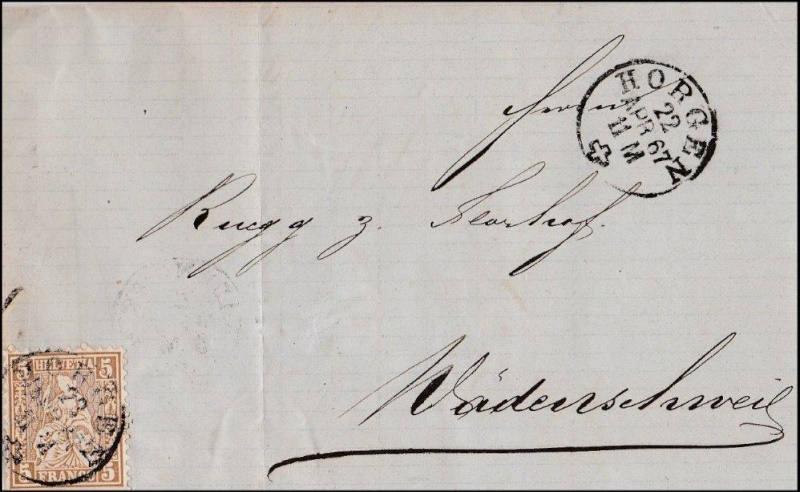 Herrn
HORGEN
22
APR 67
11 M
Ruegg z. Florhof.
Wädenschweil
5 HELVETIA 5
5 FRANCO 5